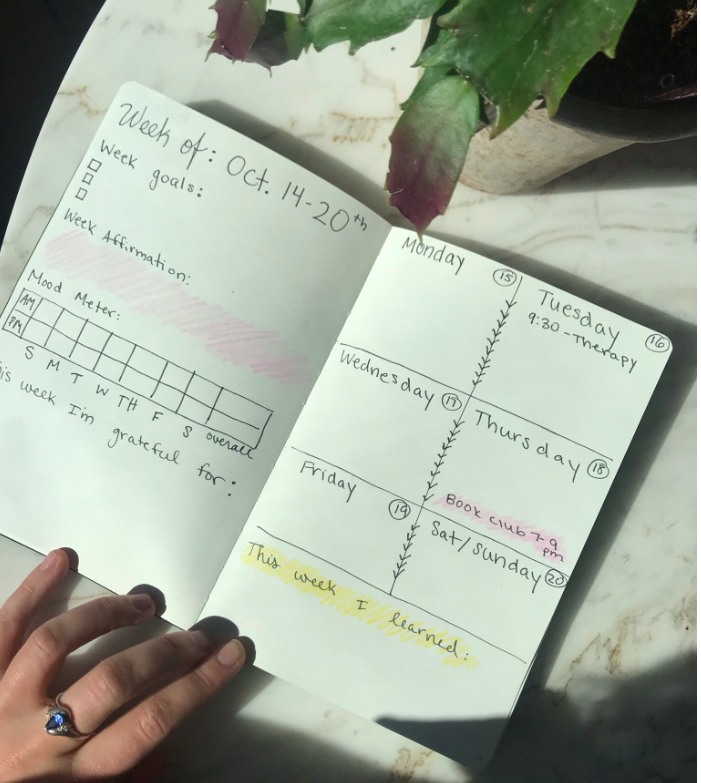 Week of: Oct. 14-20th
Week goals:
Week Affirmation:
Mood Meter:
AM
PM
S M T W TH F S overall
is week I'm grateful for:
Monday 15
Tuesday 16
9:30 - Therapy
Wednesday 17
Thursday 18
Book club 7-9
pm
Friday 19
Sat/Sunday 20
This week I learned: